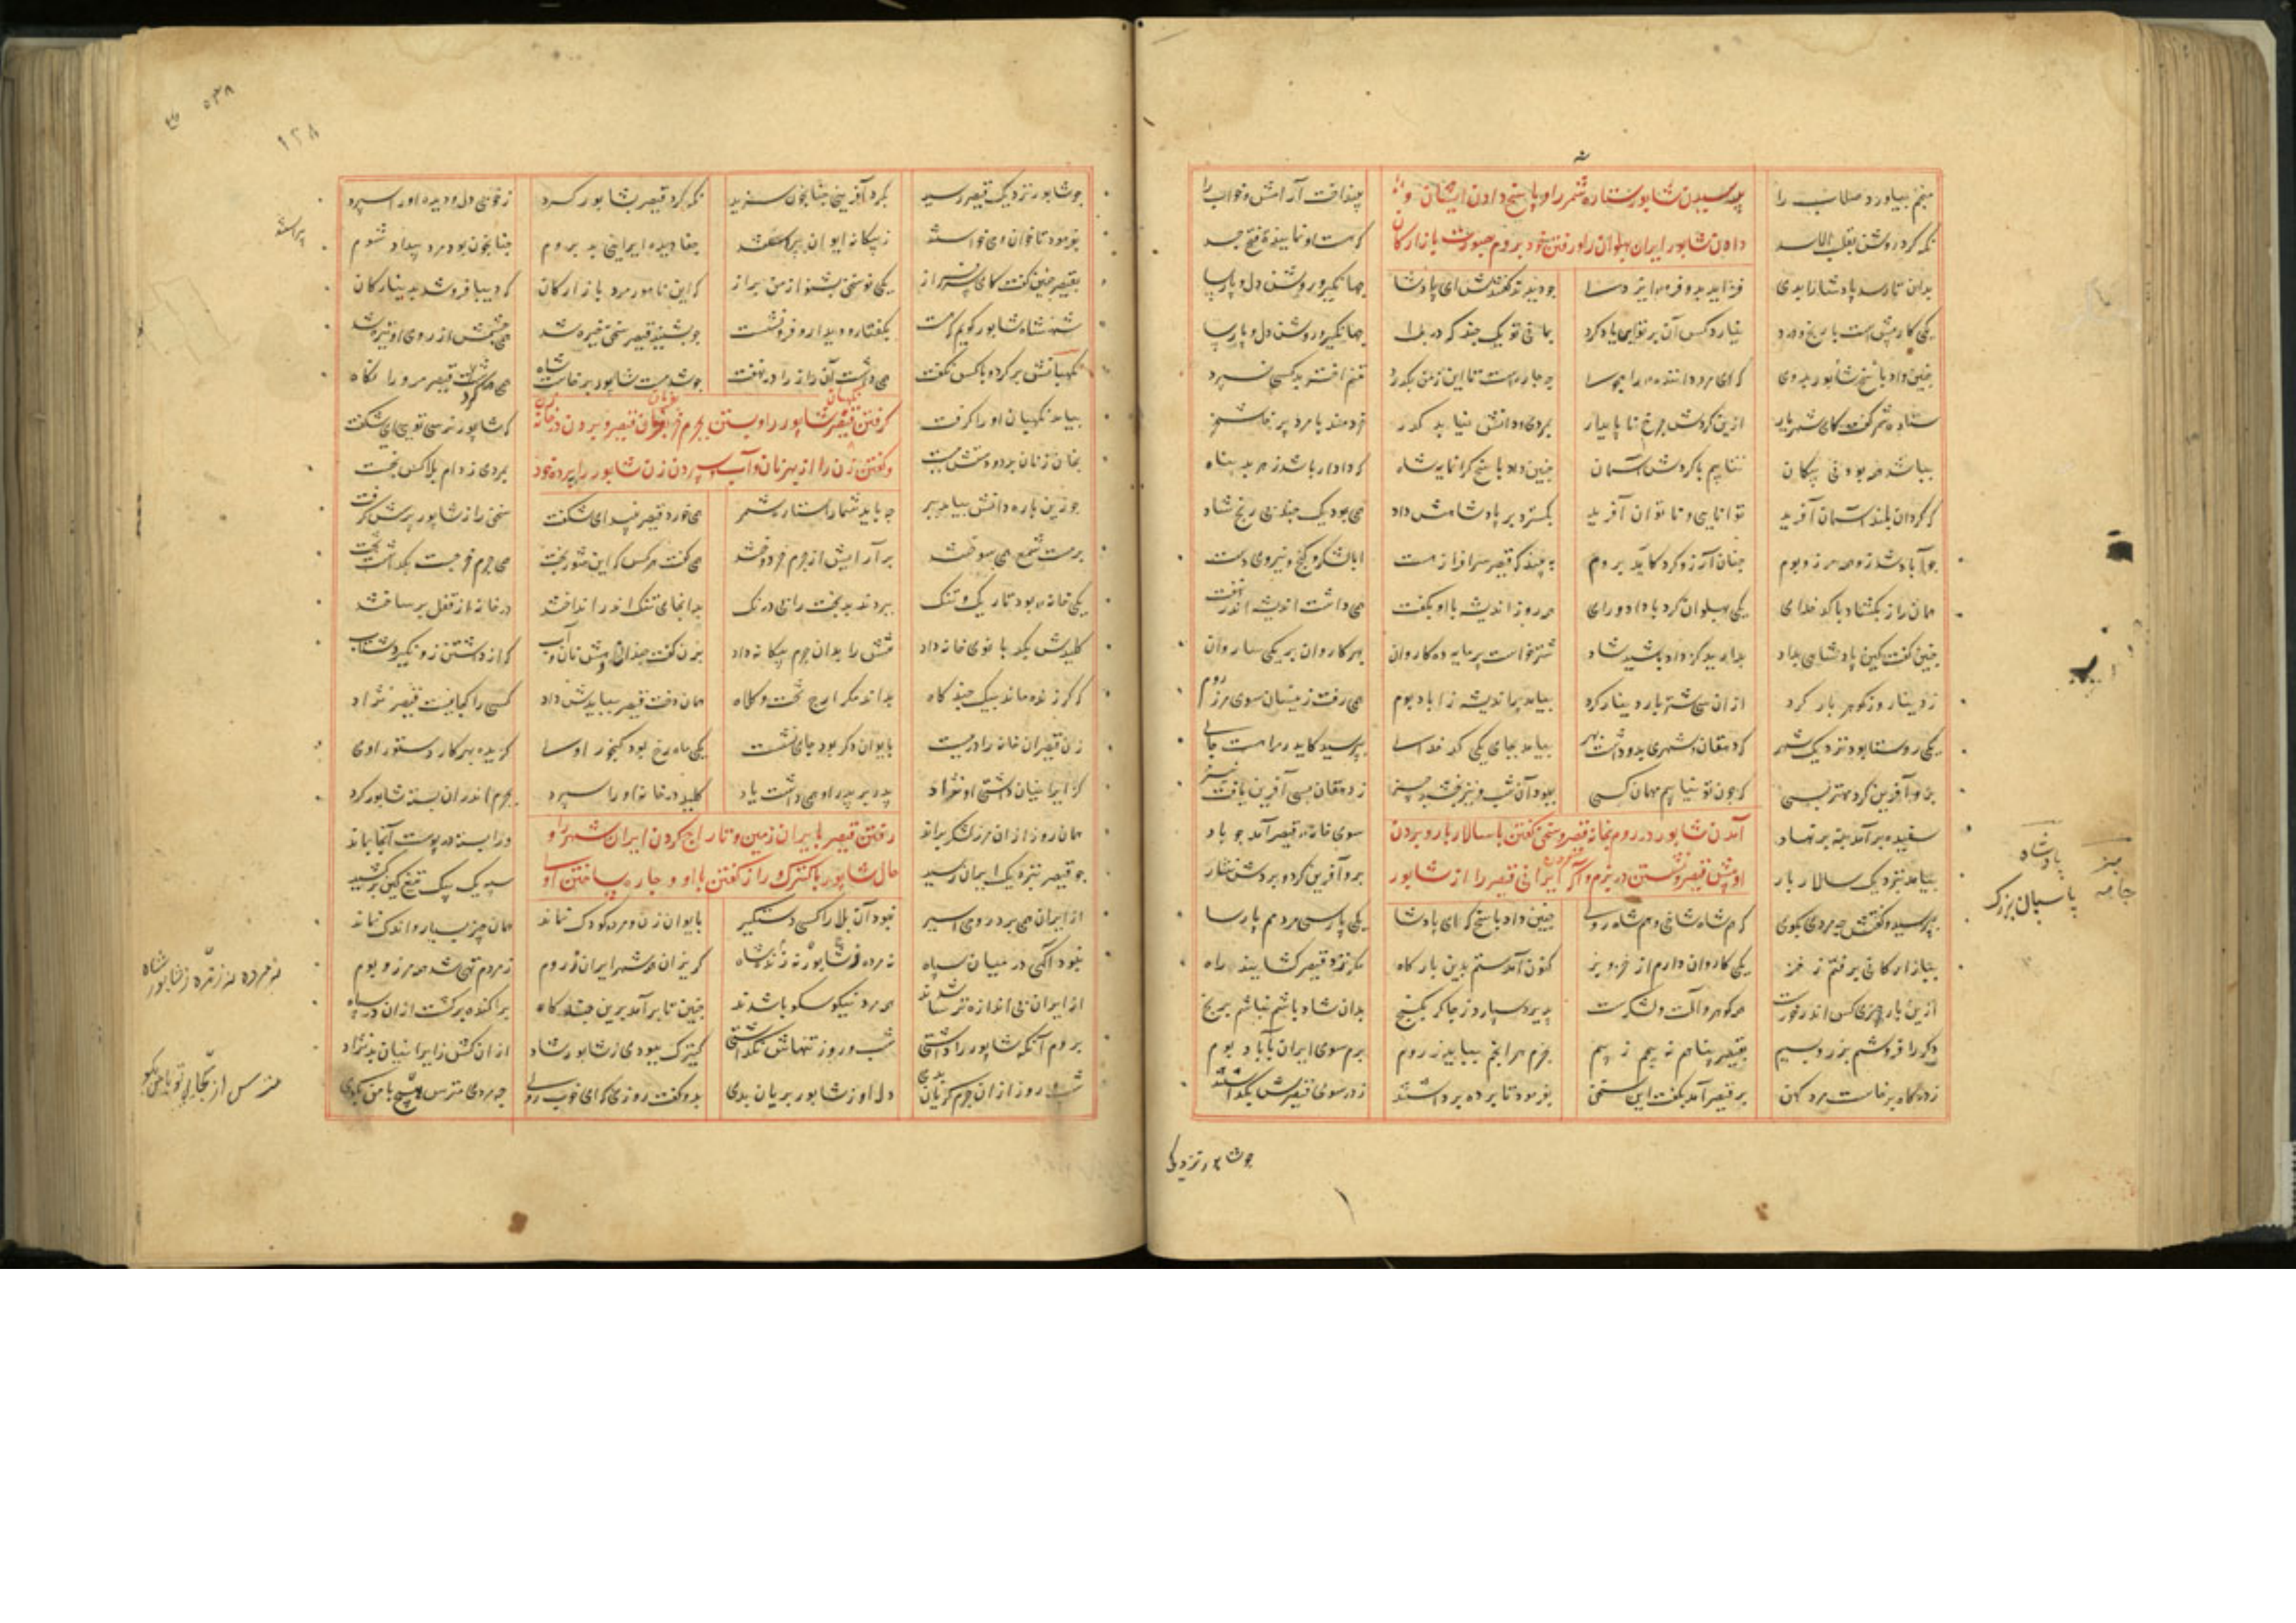 منجم بیاورد صلاب را بینداخت آرامش و خواب را
پرسیدن شاپور ستاره شمر را و پاسخ دادن ایشان و
نگه کرد روشن بقلب الاسد که هست او نماینده فتح و جد
دادن شاپور ایران به پهلوان را و رفتن خود بروم بصورت بازارگان
بدان تا رسد پادشا را بدی فزاید بدو فره ایزدی چو دیدند گفتندش ای پادشا جهانگیر و روشن دل و پارسا
یکی کار پیش است با رنج و درد نیارد کس آن بر تو بر یاد کرد
چنین داد پاسخ شاپور بدوی که ای مرد داننده و راه جوی چه چاره است تا این ز من بگذرد تنم اختر بد کسی نسپرد
ستاره شمر گفت کای شهریار ازین گردش چرخ ناپایدار بمردی و دانش نیابد گذر خردمند با مرد پرخاشخر
بباشد همه بودنی بیگمان نتابیم با گردش آسمان چنین داد پاسخ گرانمایه شاه که دادار باشد ز هر بد پناه
که گردان بلند آسمان آفرید توانایی و ناتوان آفرید بگسترد بر پادشاهیش داد همی بود یک چند بی رنج شاد
چو آباد شد زو همه مرز و بوم چنان آرزو کرد کاید بروم به بیند که قیصر سزاوار هست ابا لشکر و گنج و نیروی دست
همان راز بگشاد با کدخدای یکی پهلوان گرد با داد و رای همه روز اندیشه با او بگفت همی داشت اندیشه اندر نهفت
چنین گفت کین پادشاهی بداد بدارید کز داد باشید شاد شتر خواست پرمایه ده کاروان بهر کاروان بر یکی ساروان
ز دینار و ز گوهر بار کرد از آن سی شتر بار دینار کرد بیامد پر اندیشه ز آباد بوم همی رفت زینسان سوی مرز روم
یکی روستا بود نزدیک شهر که دهقان و شهری بدو داشت بهر بیامد بجای یکی کدخدای بپرسید کاید مرا هست جای
برو آفرین کرد مهتر بسی که چون تو نیابیم مهمان کسی ببود آن شب و نیز بخشید چیز ز دهقان بسی آفرین یافت نیز
سپیده برآمد بنه برنهاد سوی خانه قیصر آمد چو باد
آمدن شاپور در روم بخانه قیصر و سخن گفتن با سالار بار و بردن
بیامد نزدیک سالار بار برو آفرین کرد و بردش نثار
او پیش قیصر و نشستن در بزم و آگه کردن ایرانی قیصر را از شاپور
بپرسید و گفتش چه مردی بگوی که هم شاه شاخی و هم شاه روی چنین داد پاسخ که ای پادشا یکی پارسی مردم پارسا
ببازارگانی برفتم ز جز یکی کاروان دارم از خز و بز کنون آمدستم بدین بارگاه مگر نزد قیصر گشایند راه
ازین بار چیزی کش اندر خورست همه گوهر و آلت لشکرست پذیرد سپارد ز چاکر بگنج بدان شاد باشم نباشم برنج
دگر را فروشم بزر و بسیم بقیصر پناهم نپیچم ز بیم بخرم هر آنچم بباید ز روم برم سوی ایران آباد بوم
ز درگاه برخاست مرد کهن بر قیصر آمد بگفت این سخن بفرمود تا پرده برداشتند ز در سوی قیصرش بگذاشتند
چو شاپور نزدیک
بادشاه
پاسبان بزرگ
جامه
۵۳۸
۱۳۸
چو شاپور نزدیک قیصر رسید بکرد آفرینی چنانچون سزید نگه کرد قیصر بشاپور گرد ز خوبی دل و دیده او را سپرد
بفرمود تا خوان و می خواستند ز بیگانه ایوان بپیراستند جفا دیده ایرانیی بد بروم چنانچون بود مرد بیداد شوم
بقیصر چنین گفت کای سرفراز یکی نو سخن بشنو از من براز که این نامور مرد بازارگان که دیبا فروشد بدینارگان
شهنشاه شاپور گویم که هست بگفتار و دیدار و فر و نشست چو بشنید قیصر سخن تیره شد همی چشمش از روی او خیره شد
نگهبانش برکرد و با کس نگفت همی داشت آن راز را در نهفت چو شد مست شاپور برخاست شاه همی کرد قیصر مرو را نگاه
بیامد نگهبان او را گرفت که شاپور نرسی تویی ای شگفت
گرفتن قیصر شاپور را و بستن بچرم خر بفرمان قیصر و بردن در خانه
بخان زنان برد و دستش ببست بمردی ز دام بلا کس نجست
و گفتن زن را از بهر نان و آب و سپردن زن شاپور را بپرده خود
چو زین باره دانش نیاید ببر چه باید شمار ستاره شمر همی خورد قیصر نبید ای شگفت سخن را ز شاپور پرسش گرفت
بر مست شمعی همی سوختند بزاریش در چرم خر دوختند همی گفت هر کس که این شوربخت همی چرم خر جست بگذاشت تخت
یکی خانه بود تاریک و تنگ ببردند بدبخت را بی درنگ بدان جای تنگ اندر انداختند در خانه از قفل بر ساختند
کلیدش بکدبانوی خانه داد تنش را بدان چرم بیگانه داد بزن گفت چندان دهش نان و آب که از داشتن زو نگیرد شتاب
که گر زنده ماند بیک چند گاه بداند مگر ارج تخت و کلاه همان تخت قیصر نیایدش یاد کسی را کجا نیست قیصر نژاد
زن قیصر آن خانه را در ببست بایوان دگر بود جای نشست یکی ماه رخ بود گنجور اوی گزیده بهر کار دستور اوی
کز ایرانیان داشتی او نژاد پدر بر پدر او همی داشت یاد کلید در خانه او را سپرد بچرم اندران بسته شاپور گرد
همان روز از آن مرز لشکر براند ورا بسته در پوست آنجا بماند
رفتن قیصر بایران زمین و تاراج کردن ایران شهر را و
چو قیصر بنزدیک ایران رسید سپه یک بیک تیغ کین برکشید
حال شاپور با کنیزک و راز گفتن با او و چاره ساختن او
از ایران همی برد رومی اسیر نبود آن بلا را کسی دستگیر بایوان زن و مرد و کودک نماند همان چیز بسیار و اندک نماند
نبود آگهی در میان سپاه نه مرده ز شاپور نه زنده شاه گریزان همه شهر ایران ز روم ز مردم تهی شد همه مرز و بوم
از ایران بی اندازه ترسا شدند همه مرد نیکو سکوبا شدند چنین تا برآمد برین چند گاه پراکنده برگشت از ایران سپاه
بروم آنکه شاپور را داشتی شب و روز تنهاش نگذاشتی کنیزک نبودی ز شاپور شاد از آن کش ز ایرانیان بد نژاد
شب و روز از آن چرم گریان بدی دل او ز شاپور بریان بدی بدو گفت روزی که ای خوب روی چه مردی مترس ایچ با من بگوی
پیراستند
نه مرده نه زنده ز شاپور شاه